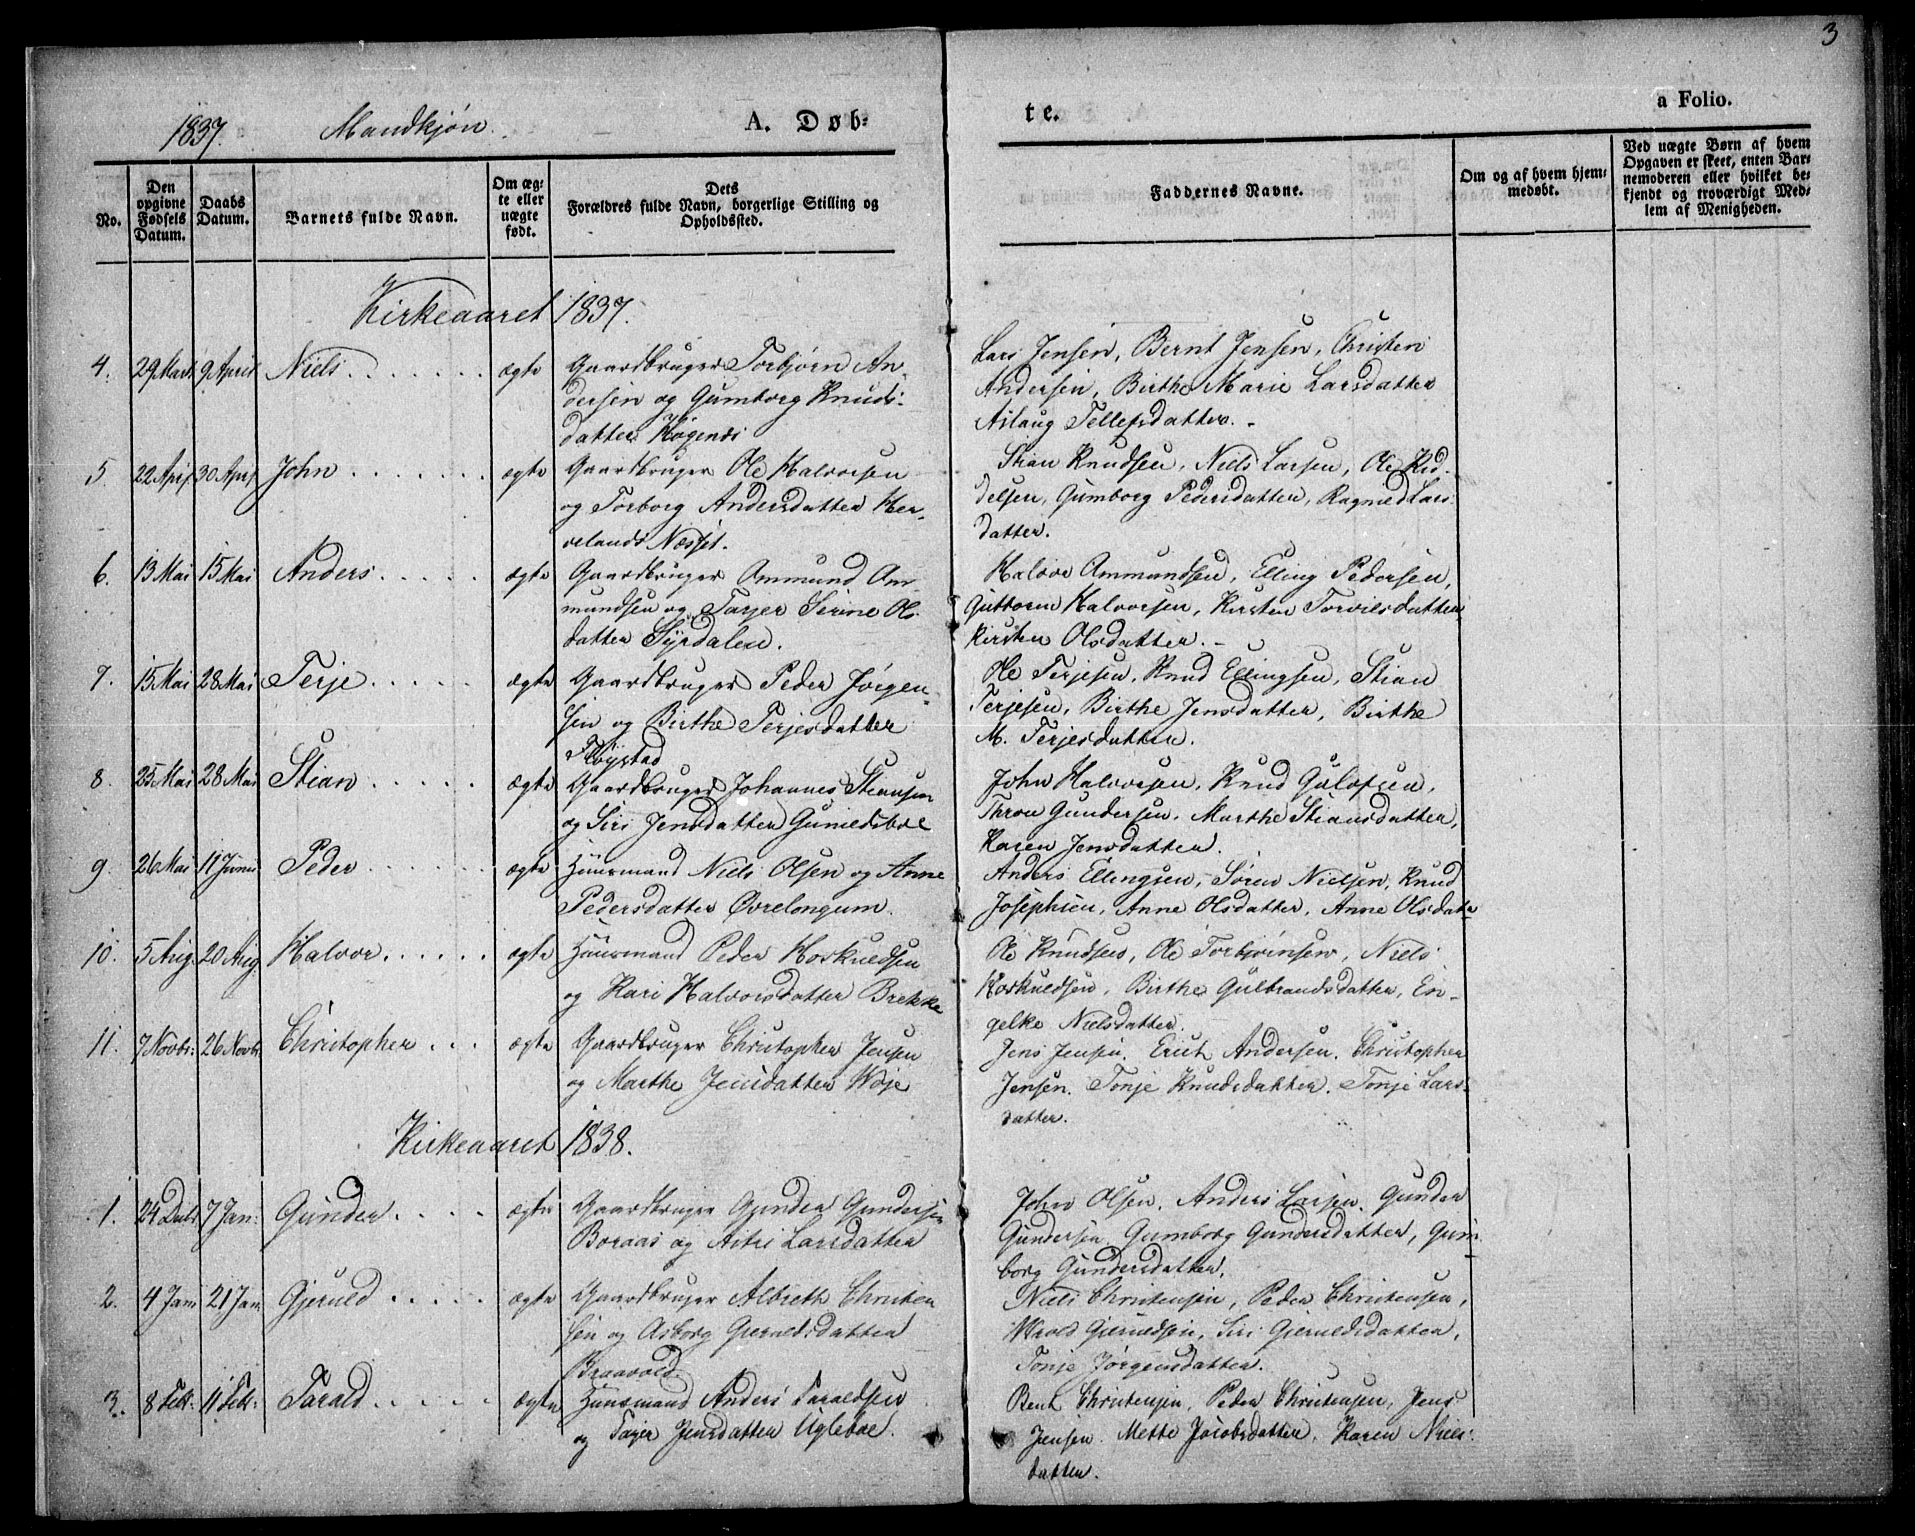 3
1837. Mandkjøn. A. Døb-
te. a Folio.
No.
Den opgivne Fødsels Datum.
Daabs Datum.
Barnets fulde Navn.
Om ægte eller uægte født.
Dets Forældres fulde Navn, borgerlige Stilling og Opholdssted.
Faddernes Navne.
Om og af hvem hjemmedøbt.
Ved uægte Børn af hvem Opgaven er skeet, enten Barnemoderen eller hvilket bekjendt og troværdigt Medlem af Menigheden.
Kirkeaaret 1837.
4. 29 Mars 9 April Niels ægte Gaardbruger Torbjørn An-
dersen og Gumborg Knuds-
datter
Lars Jensen, Bernt Jensen, Christen
Andersen, Birthe Marie Larsdatter
Aslaug Tellefsdatter. -
5 22 Apr 30 Apr John ægte Gaardbruger Ole Halvorsen
og Torborg Andersdatter Her-
velands Næsset.
Stian Knudsen, Niels Larsen, Ole Kid-
delsen, Gumborg Pedersdatter, Ragnild Lars-
datter.
6. 13 Mai 15 Mai Anders ægte Gaardbruger Ammund Am-
mundsen og Tarjer Serine Ols-
datter Syrdalen.
Halvor Ammundsen, Elling Pedersen,
Guttorm Halvorsen, Kirsten Torvilsdatter
Kirsten Olsdatter. -
7. 15 Mai 28 Mai Terje ægte Gaardbruger Peder Jørgen-
sen og Birthe Terjesdatter
Fløystad
Ole Terjesen, Knud Ellingsen, Stian
Terjesen, Birthe Jensdatter, Birthe
M. Terjesdatter.
8. 25 Mai 28 Mai Stian ægte Gaardbruger Johannes Stiansen
og Siri Jensdatter Gunildsboe
John Halvorsen, Knud Gulofsen,
Thron Gundersen, Marthe Stiansdatter,
Karen Jensdatter.
9. 26 Mai 11 Juni Peder ægte Huusmand Niels Olsen og Anne
Pedersdatter Øvrelongum.
Anders Ellingsen, Søren Nielsen, Knud
Josephsen, Anne Olsdatter, Anne Olsdatr
10. 5 Aug 20 Aug Halvor ægte Huusmand Peder Hoskuldsen
og Kari Halvorsdatter Brekke
Ole Knudsen, Ole Torbjørnsen, Niels
Hoskuldsen, Birthe Gulbrandsdatter, En-
gelke Nielsdatter.
11. 7 Novbr: 26 Novbr. Christopher ægte Gaardbruger Christopher Jensen
og Marthe Jensdatter Woje
Jens Jensen. Erich Andersen. Christopher
Jensen. Tonje Knudsdatter. Tonje Lars-
datter.
Kirkeaaret 1838.
1. 24 7 Jan: Gunder ægte Gaardbruger Gunder Gundersen
Boraas og Astri Larsdatter
John Olsen. Anders Larsen. Gunder
Gundersen. Gumborg Gundersdatter, Gum-
borg Gundersdatter.
2. 4 Jan 21 Jan Gjeruld ægte Gaardbruger Albreth Christen
sen og Asborg Gjeruldsdatter
Braavold
Niels Christensen, Peder Christensen,
Wrold Gjeruldsen, Siri Gjeruldsdatter,
Tonje Jørgensdatter.
3. 8 Febr. 11 Febr: Tarald ægte Huusmand Anders Taraldsen
og Tarjer Jensdatter Ugleboe.
Bent Christensen, Peder Christensen, Jens
Jensen. Mette Jacobsdatter. Karen Niels-
datter.